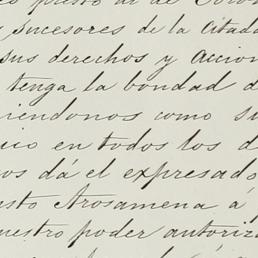 y sucesores de la citada
sus derechos y accion
tenga la bondad d
iendonos como su
ico en todos los d
os dá el expresado
usto Arosamena á
uestro poder autoriz